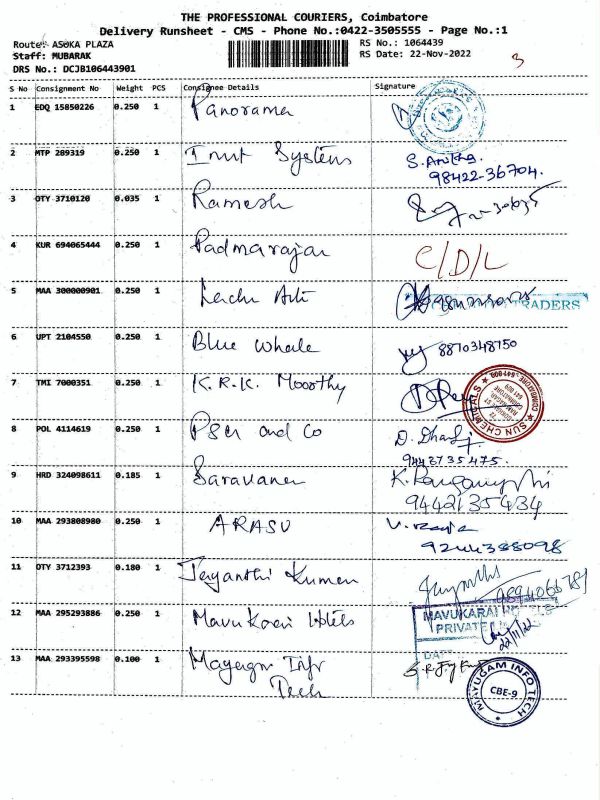 THE PROFESSIONAL COURIERS, Coimbatore
Delivery Runsheet - CMS - Phone No.:0422-3505555 - Page No.:1
Route: ASOKA PLAZA
Staff: MUBARAK
DRS No.: DCJB106443901
RS No.: 1064439
RS Date: 22-Nov-2022
3
S No Consignment No Weight PCS Consignee Details Signature
1 EDQ 15850226 0.250 1 Panorama
2 MTP 289319 0.250 1 Systems S. Anitha.
98422-36704.
3 OTY 3710120 0.035 1 Ramesh
4 KUR 694065444 0.250 1 Padmarajan C/D/L
5 MAA 300000901 0.250 1 TRADERS
6 UPT 2104550 0.250 1 Blue whale 8870348750
7 TMI 7000351 0.250 1 K.R.K. Moorthy
SUN CHEMICALS
COIMBATORE
8 POL 4114619 0.250 1 and Co D.
9443735475.
9 HRD 324098611 0.185 1 Saravanan K.
9442135434
10 MAA 293808980 0.250 1 ARASU
9244388098
11 OTY 3712393 0.180 1 Jayanthi Kumar
9894066781
12 MAA 295293886 0.250 1 Mavukarai
MAVUKARAI
PRIVATE
22/11/22
DATE
13 MAA 293395598 0.100 1 Infr
Tech
MAYUGAM INFO TECH
CBE-9